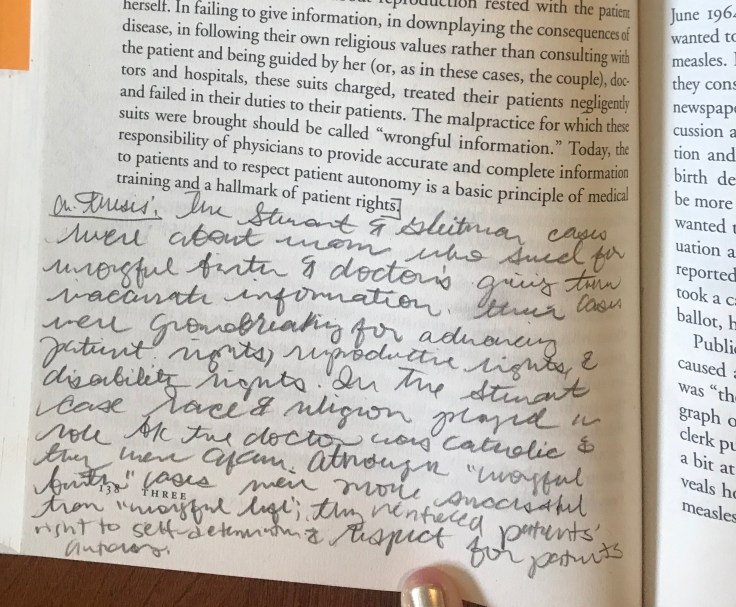 reproduction rested with the patient
herself. In failing to give information, in downplaying the consequences of
disease, in following their own religious values rather than consulting with
the patient and being guided by her (or, as in these cases, the couple), doc-
tors and hospitals, these suits charged, treated their patients negligently
and failed in their duties to their patients. The malpractice for which these
suits were brought should be called “wrongful information.” Today, the
responsibility of physicians to provide accurate and complete information
to patients and to respect patient autonomy is a basic principle of medical
training and a hallmark of patient rights.
Ch. Thesis: The Stewart & Gleitman cases
were about mom who sued for
wrongful birth & doctors giving them
inaccurate information. their cases
were groundbreaking for advancing
patient rights, reproductive rights, &
disability rights. In the Stewart
case race & religion played a
role bk the doctor was catholic &
they were afam. Although "wrongful
birth" cases were more successful
138 THREE
than "wrongful life", they reinforced patients'
right to self-determining & respect for patients
autonomy.
June 1964
wanted to
measles.
they cons
newspape
cussion a
tion and
birth de
be more
wanted t
uation a
reported
took a c
ballot, h
Publi
caused a
was “th
graph o
clerk pu
a bit at
veals ho
measles